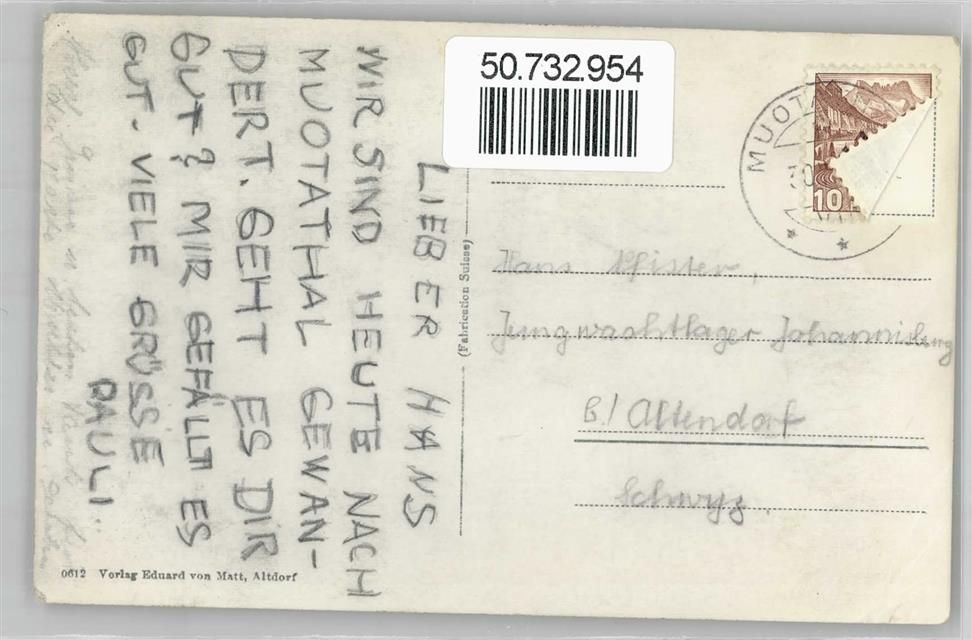 50.732.954
MUOTA
10
LIEBER HANS
WIR SIND HEUTE NACH
MUOTATHAL GEWAN-
DERT. GEHT ES DIR
GUT? MIR GEFÄLLT ES
GUT. VIELE GRÜSSE
PAULI.
(Fabrication Suisse)
Hans Pfister,
Jungwachtlager Johannisburg
B./ Altendorf
Schwyz.
0612 Verlag Eduard von Matt, Altdorf